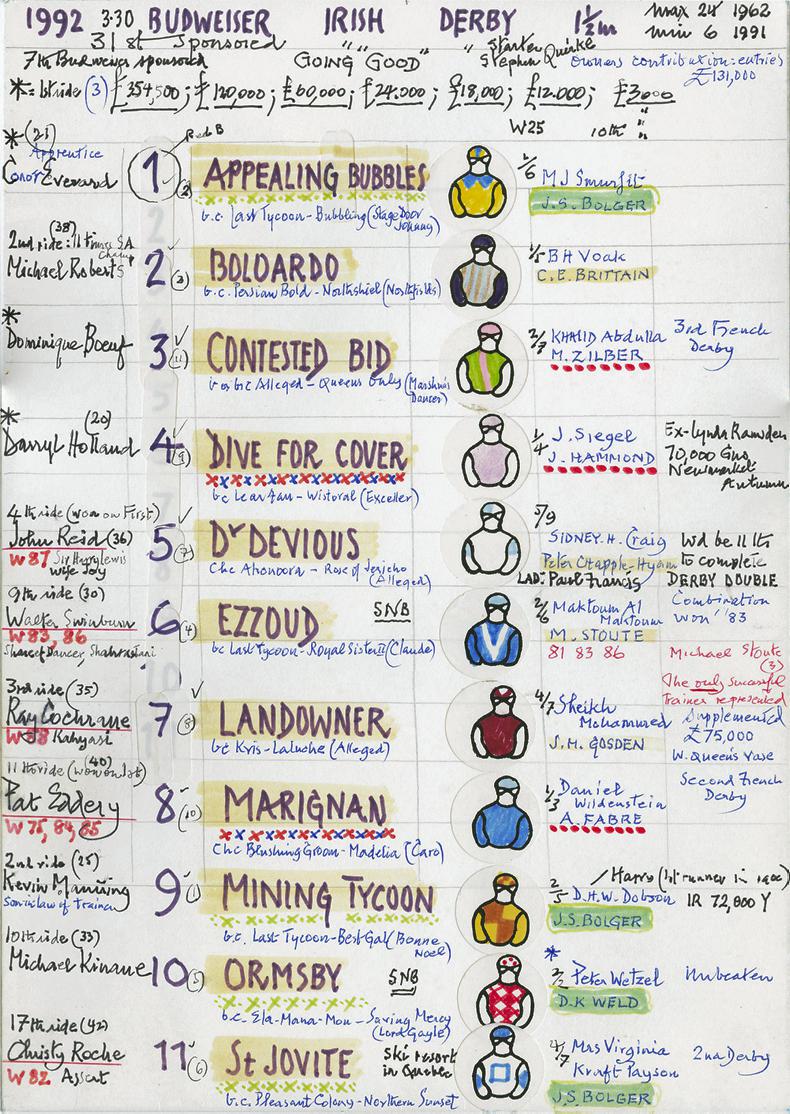 1992 3.30 BUDWEISER IRISH DERBY 1½m max 24 1962
31st Sponsored min 6 1991
7th Budweiser sponsored "GOING "GOOD" "Starter Stephen Quirke owners contribution: entries £131,000
* = 1st ride (3) £354,500; £120,000; £60,000; £24.000; £18,000; £12.000; £3000
W25 10th "
* (21) Red B
Apprentice
Conor Everard 1 (2) APPEALING BUBBLES 1/6 M J Smurfit
J.S. BOLGER
b.c. Last Tycoon - Bubbling (Stage Door Johnny)
(38)
2nd ride: 11 times SA Champ
Michael Roberts 2 (3) BOLOARDO 1/5 B H Voak
C.E. BRITTAIN
b.c. Persian Bold - Northshiel (Northfields)
*
Dominique Boeuf 3 (11) CONTESTED BID 2/7 KHALID Abdulla 3rd French Derby
M. ZILBER
b or br c Alleged - Queens Only (Marshua's Dancer)
* (20)
Darryl Holland 4 (9) DIVE FOR COVER 1/4 J. Siegel Ex-Lynda Ramsden
J. HAMMOND 70,000 Gns Newmarket Autumn
b c Lear Fan - Wistoral (Exceller)
4th ride (won on First) 5/9
John Reid (36) 5 (7) Dr DEVIOUS SIDNEY. H. Craig Wd be 11th
W 87 Sir Harry Lewis Peter Chapple-Hyam to complete
wife Joy Ch c Ahonoora - Rose of Jericho (Alleged) LAD: Paul Francis DERBY DOUBLE
9th ride (30) SNB Combination
Walter Swinburn 6 (4) EZZOUD 2/6 Maktoum Al Maktoum won '83
W 83, 86 M. STOUTE
Shareef Dancer, Shahrastani b c Last Tycoon - Royal Sister II (Claude) 81 83 86 Michael Stoute (3)
The only successful
3rd ride (35) trainer represented
Ray Cochrane 7 (8) LANDOWNER 4/7 Sheikh Mohammed Supplemented
W 88 Kahyasi £75,000
b c Kris - Laluche (Alleged) J.H. GOSDEN W. Queen's Vase
11th ride (won on 1st) (40)
Pat Eddery 8 (10) MARIGNAN 1/3 Daniel Wildenstein Second French Derby
W 75, 84, 85 A. FABRE
Ch c Blushing Groom - Madelia (Caro)
2nd ride (25)
Kevin Manning 9 (1) MINING TYCOON 2/5 D.H.W. Dobson IR 72,800 Y
Son in law of trainer J.S. BOLGER
b.c. Last Tycoon - Best Gal (Bonne Noel)
10th ride (33) *
Michael Kinane 10 (5) ORMSBY SNB 2/2 Peter Wetzel Unbeaten
D.K WELD
b.c. Ela-Mana-Mou - Saving Mercy (Lord Gayle)
17th ride (42)
Christy Roche 11 (6) St JOVITE Ski resort in Quebec 4/7 Mrs Virginia Kraft Payson 2nd Derby
W 82 Assert J.S. BOLGER
b.c. Pleasant Colony - Northern Sunset